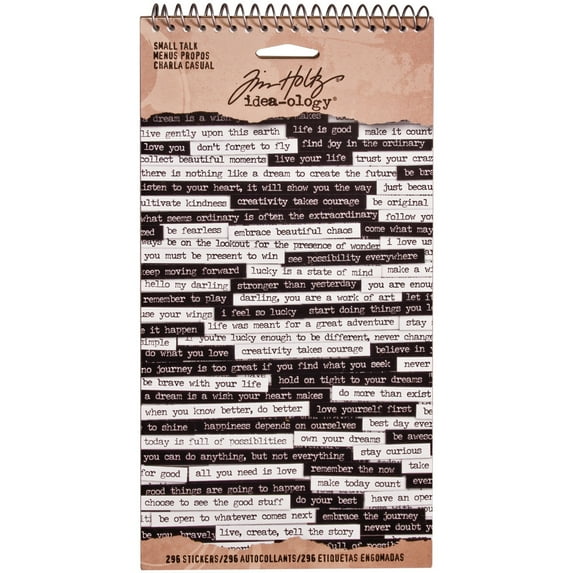 SMALL TALK
MENUS PROPOS
CHARLA CASUAL
Tim Holtz
idea-ology®
dream is a wish makes
live gently upon this earth life is good make it count
love you don't forget to fly find joy in the ordinary
collect beautiful moments live your life trust your craz
there is nothing like a dream to create the future be bra
listen to your heart, it will show you the way just becau
ultivate kindness creativity takes courage be original
what seems ordinary is often the extraordinary follow you
zed be fearless embrace beautiful chaos come what may
ways be on the lookout for the presence of wonder i love us
you must be present to win see possibility everywhere
keep moving forward lucky is a state of mind make a wi
hello my darling stronger than yesterday you are enoug
remember to play darling, you are a work of art let it
use your wings i feel so lucky start doing things you lo
e it happen life was meant for a great adventure stay
simple if you're lucky enough to be different, never change
do what you love creativity takes courage believe in y
no journey is too great if you find what you seek never
be brave with your life hold on tight to your dreams
a dream is a wish your heart makes do more than exist
when you know better, do better love yourself first
to shine happiness depends on ourselves best day ever
today is full of possiblities own your dreams be aweso
you can do anything, but not everything stay curious
for good all you need is love remember the now take
good things are going to happen make today count ever
choose to see the good stuff do your best have an open
it be open to whatever comes next embrace the journey
be you, bravely live, create, tell the story never doubt y
full of possib
296 STICKERS/296 AUTOCOLLANTS/296 ETIQUETAS ENGOMADAS